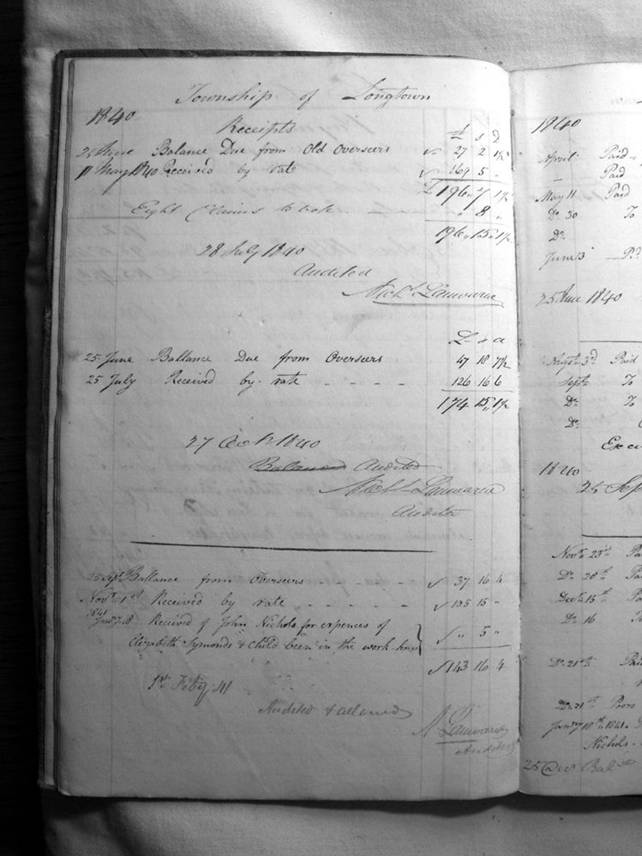 Township of Longtown
1840
Receipts
£ s d
25 June Balance Due from Old Overseers 27 2 1½
11 May 1840 Received by rate 169 5 "
£ 196 7 1½
Eight 8 "
196 15 1½
28 July 1840
Audited
Michl Lanwarne
£ s d
25 June Ballance Due from Overseers 47 18 7½
25 July Received by rate - - - - 126 16 6
174 15 1½
27 Oct 1840
Balanced Audited
Michl Lanwarne
Auditor
25 Sept Ballance from Overseers - - - - 37 16 4
Novr 1st Received by rate - - - - - 105 15 -
1841
Jany 18 Received of John Nichols for expences of
Elizabeth Symonds & Child been in the work house } " 5 "
143 16 4
1st Feby 41
Audited & allowed
M Lanwarne
Auditor
1840
April Paid
— Paid
May 11 Paid
Do 30 To
Do
June 13 Pd
25 June 1840
Septr 3d Paid
Septr To
Do To
Do
1840
25 Sep
Novr 23d Pa
Do 28th Pa
Decr 15th Pa
Do 16
Do 21st Paid
Do 21st
Jany 18th 1841
Nichols
25 Decr Bal